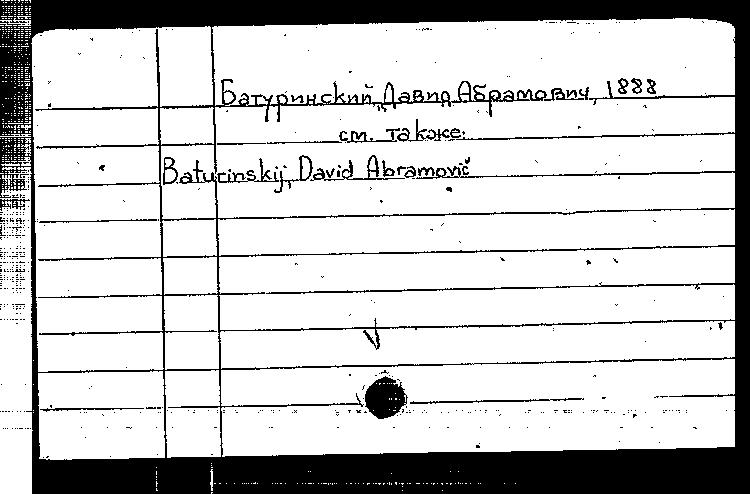 Батуринский, Давид Абрамович, 1888
см. также:
Baturinskij, David Abramovič